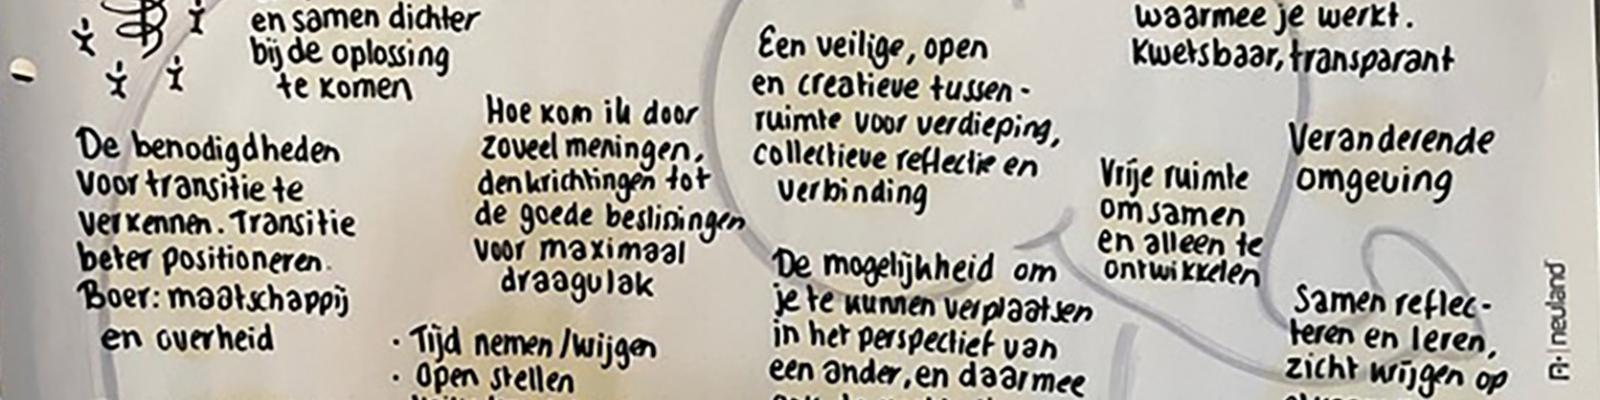 en samen dichter
bij de oplossing
te komen
De benodigdheden
voor transitie te
verkennen. Transitie
beter positioneren.
Boer: maatschappij
en overheid
Hoe kom ik door
zoveel meningen,
denkrichtingen tot
de goede beslissingen
voor maximaal
draagvlak
• Tijd nemen/wijgen
• Open stellen
Een veilige, open
en creatieve tussen-
ruimte voor verdieping,
collectieve reflectie en
verbinding
De mogelijkheid om
je te kunnen verplaatsen
in het perspectief van
een ander, en daarmee
waarmee je werkt.
Kwetsbaar, transparant
Vrije ruimte
om samen
en alleen te
ontwikkelen
Veranderende
omgeving
Samen reflec-
teren en leren,
zicht krijgen op
neuland